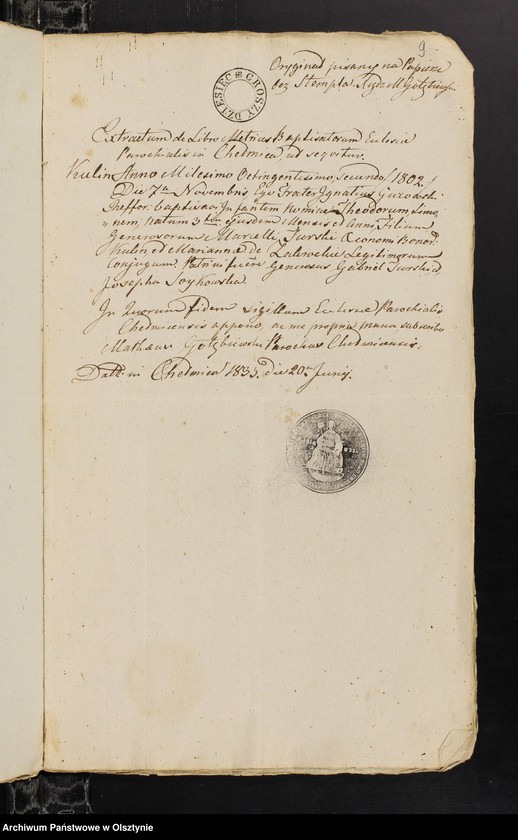 9
Oryginał pisany na Papierze
bez Stempla
DZIESIĘC GROSZY
Extractum de Libro Metrices Baptisatorum Eclesiæ
Parochialis in Chełmica ut sequitur.
Kulin Anno Milesimo Octingentissimo, secundo 1802
Die 7ma Novembris Ego Frater Ignatius
Baptisavi Infantem Nomine Theodorum
natum 3 ejusdem Mensis et Anni Filium
Generosorum Marcelli Turski Œconomi Bonor
Kulin, et Mariannæ de Zalewskie Legitimorum
Conjugum. Patrini fuere Generosus Gabriel Turski
Josepha
In Quorum fidem Sigillum Eclesiæ Parochialis
Chelmicensis appono, ac me propria manu subscribo
Mathæus Gołębiewski Parochus Chelmicensis.
Datt: in Chełmica 1835. die 20. Junij.
Archiwum Państwowe w Olsztynie